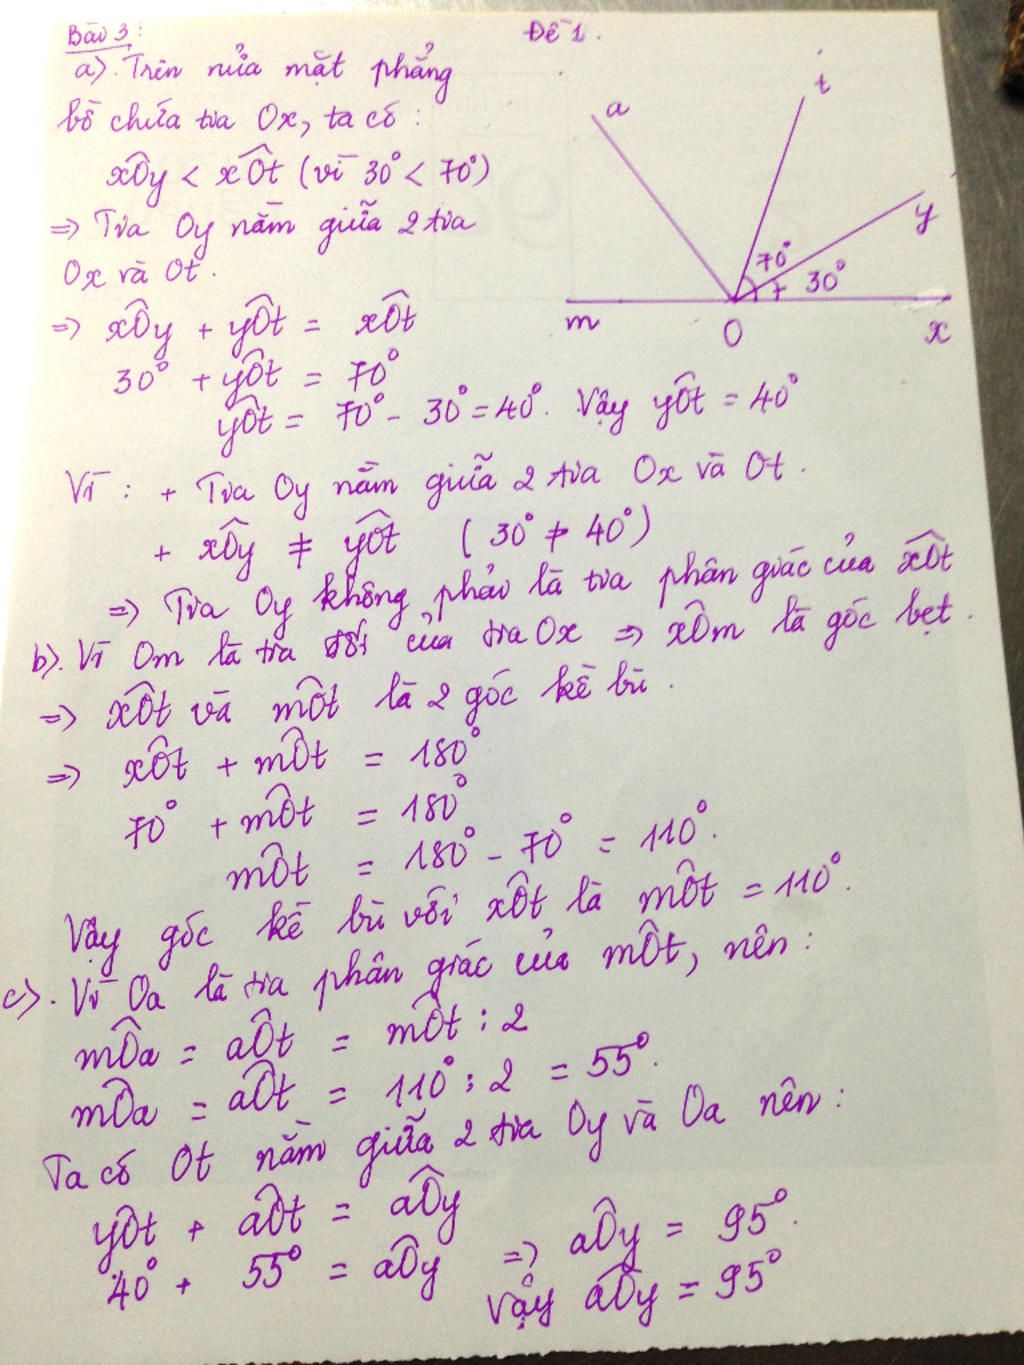 Bài 3:
Đề 1.
a). Trên nửa mặt phẳng
bờ chứa tia Ox, ta có:
xÔy < xÔt (vì 30° < 70°)
=> Tia Oy nằm giữa 2 tia
Ox và Ot.
=> xÔy + yÔt = xÔt
30° + yÔt = 70°
yÔt = 70° - 30° = 40°. Vậy yÔt = 40°
a
t
y
70°
30°
m
O
x
Vì : + Tia Oy nằm giữa 2 tia Ox và Ot.
+ xÔy ≠ yÔt (30° ≠ 40°)
=> Tia Oy không phải là tia phân giác của xÔt
b). Vì Om là tia đối của tia Ox => xÔm là góc bẹt.
=> xÔt và mÔt là 2 góc kề bù.
=> xÔt + mÔt = 180°
70° + mÔt = 180°
mÔt = 180° - 70° = 110°.
Vậy góc kề bù với xÔt là mÔt = 110°.
c). Vì Oa là tia phân giác của mÔt, nên:
mÔa = aÔt = mÔt : 2
mÔa = aÔt = 110° : 2 = 55°.
Ta có Ot nằm giữa 2 tia Oy và Oa nên:
yÔt + aÔt = aÔy
40° + 55° = aÔy => aÔy = 95°.
Vậy aÔy = 95°